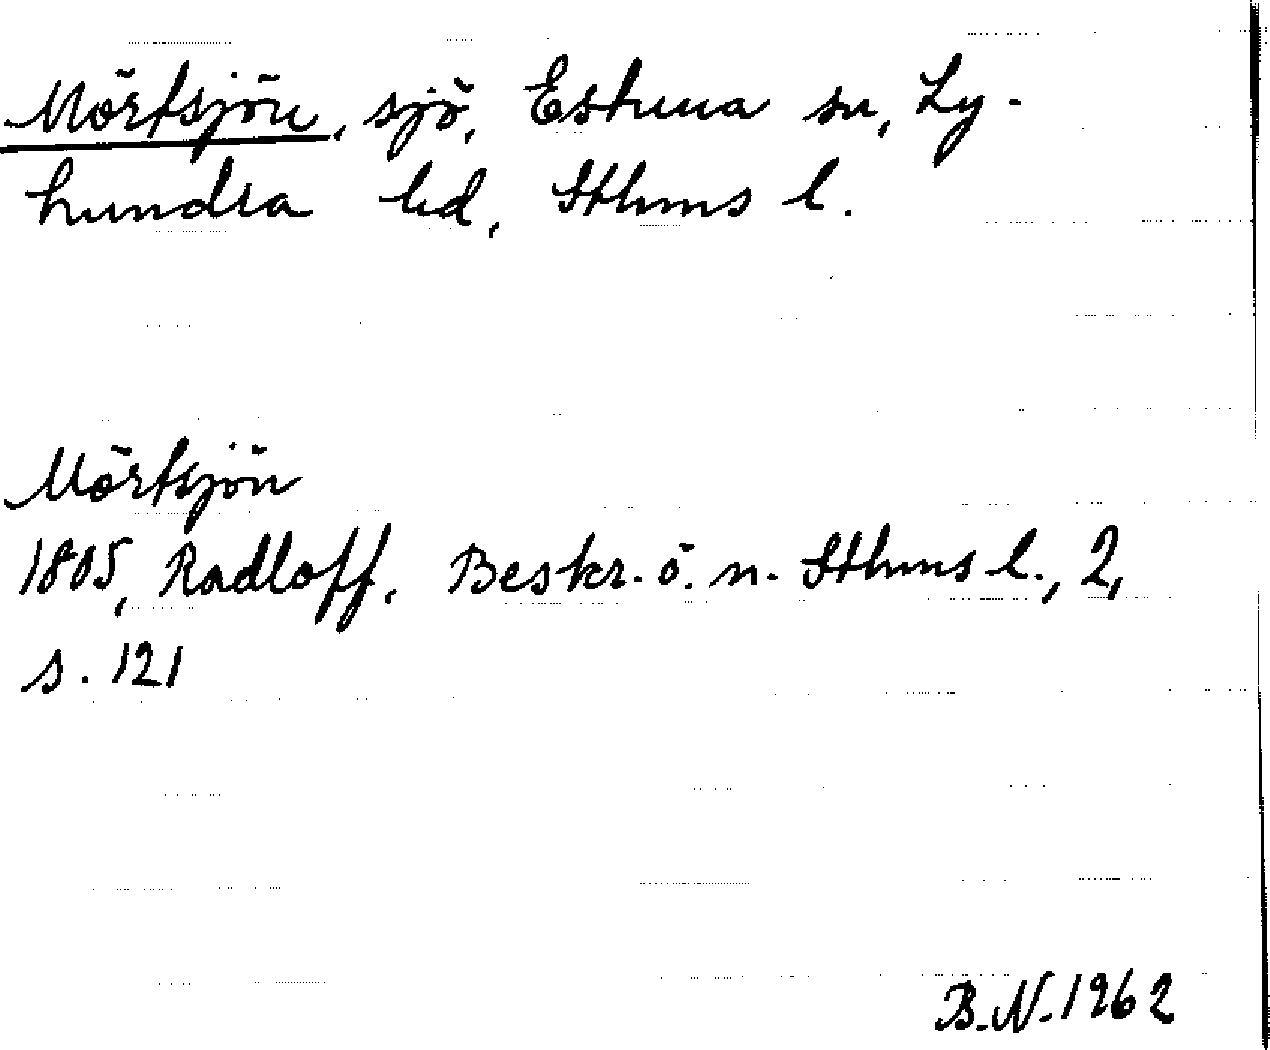 Mörtsjön, sjö, Estuna sn, Ly-
hundra hd, Sthms l.
Mörtsjön
1805, Radloff, Beskr. ö. n. Sthms l., 2,
s. 121
B.N. 1962